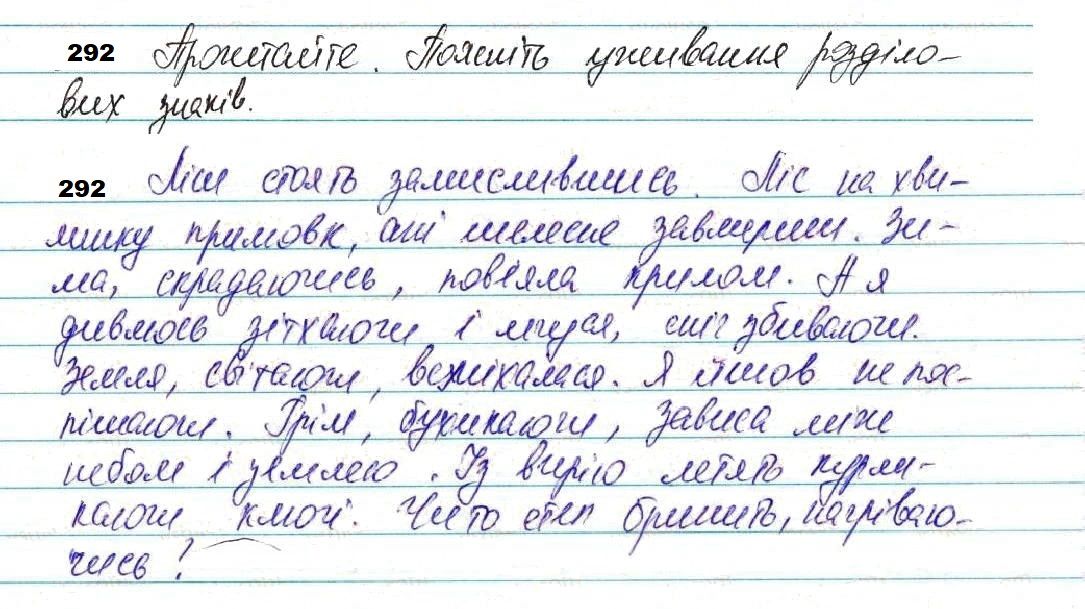 292 Прочитайте. Поясніть уживання розділо-
вих знаків.
292 Ліси стоять замислившись. Ліс на хви-
линку примовк, ані шелесне завмерши. Зи-
ма, скрадаючись, повіяла крилом. А я
дивлюсь зітхаючи і мчуся, сніг збиваючи.
Земля, світаючи, всміхалася. Я йшов не пос-
пішаючи. Грім, бухикаючи, зависа між
небом і землею. Із вирію летять курли-
каючи ключі. Чи то степ бринить, нагріваю-
чись?